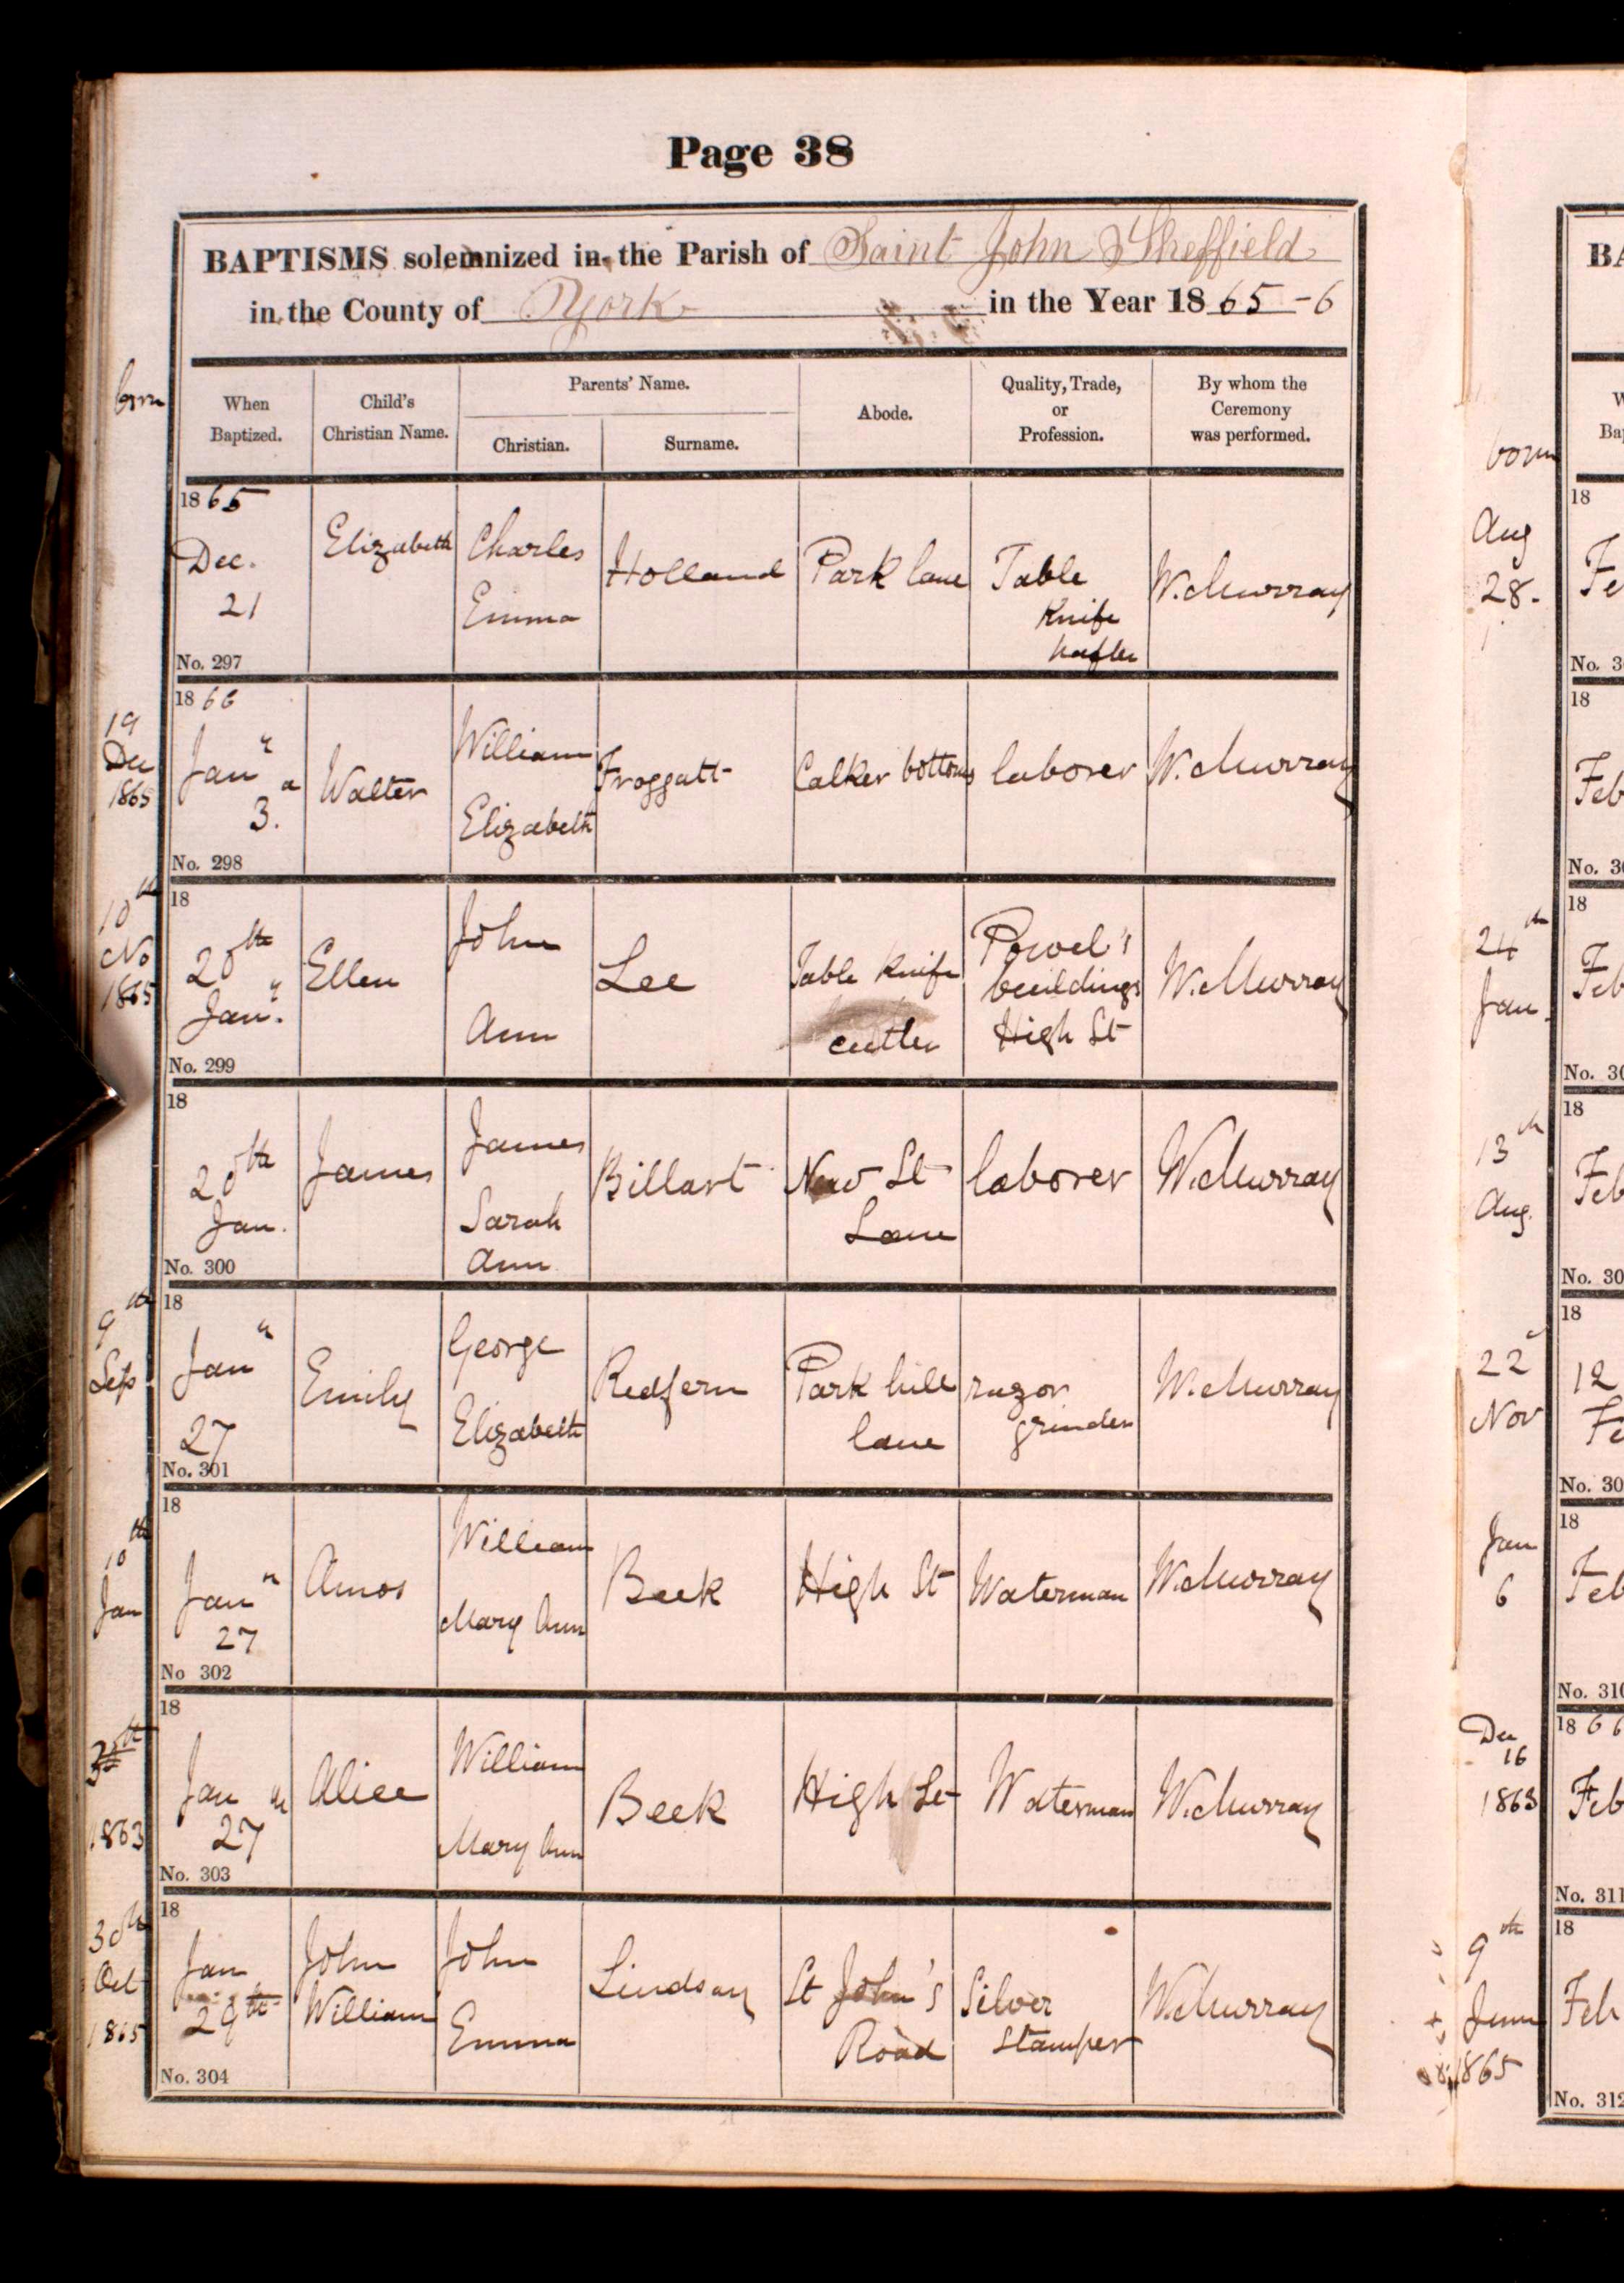 Page 38
BAPTISMS solemnized in the Parish of Saint John Sheffield
in the County of York in the Year 1865-6
born
When
Baptized.
Child's
Christian Name.
Parents' Name.
Christian.
Surname.
Abode.
Quality, Trade,
or
Profession.
By whom the
Ceremony
was performed.
1865
Dec.
21
No. 297
Elizabeth
Charles
Emma
Holland
Park lane
Table
Knife
hafter
W. Murray
19
Dec
1865
1866
Jany
3.
No. 298
Walter
William
Elizabeth
Froggatt
Calker bottoms
laborer
W. Murray
10th
No
1865
18
20th
Jany.
No. 299
Ellen
John
Ann
Lee
Table Knife
cutler
Powel's
buildings
High St
W. Murray
18
20th
Jan.
No. 300
James
James
Sarah
Ann
Billart
New St
Lane
laborer
W. Murray
9th
Sep
18
Jany
27
No. 301
Emily
George
Elizabeth
Redfern
Park hill
lane
razor
grinder
W. Murray
10th
Jan
18
Jany
27
No 302
Amos
William
Mary Ann
Beek
High St
Waterman
W. Murray
1863
18
Jan
27
No. 303
Alice
William
Mary Ann
Beek
High St
Waterman
W. Murray
30th
Oct
1865
18
Jan
29th
No. 304
John
William
John
Emma
Lindsay
St John's
Road
Silver
Stamper
W. Murray
BA
born
Aug
28.
18
Fe
No. 3
18
Feb
No. 30
24th
Jan.
18
Feb
No. 30
13th
Aug.
18
Feb
No. 30
22
Nov
18
12
Fe
No. 30
Jan
6
18
Feb
No. 310
Dec
16
1863
1866
Feb
No. 311
9th
June
1865
18
Feb
No. 312